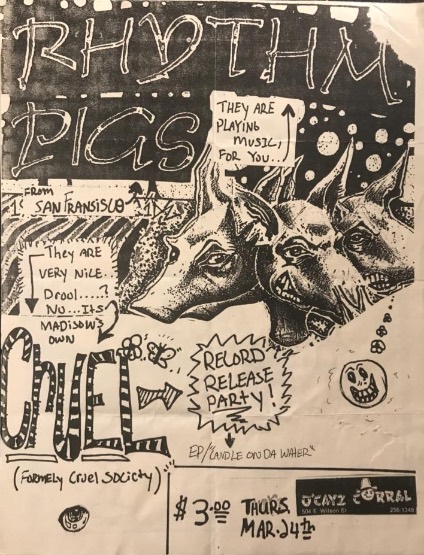 RHYTHM
PIGS
THEY ARE
PLAYING
MUSIC,
FOR YOU...
FROM
SAN FRANSISCO
They ARE
VERY NICE.
Drool.....?
No...Its
MADISON'S
OWN
CRUEL
RECORD
RELEASE
PARTY!
EP/"CANDLE ON DA WATER"
(FORMELY CRUEL SOCIETY)
$3.00 THURS.
MAR. 24th
O'CAYZ CORRAL
504 E. Wilson St 256-1348